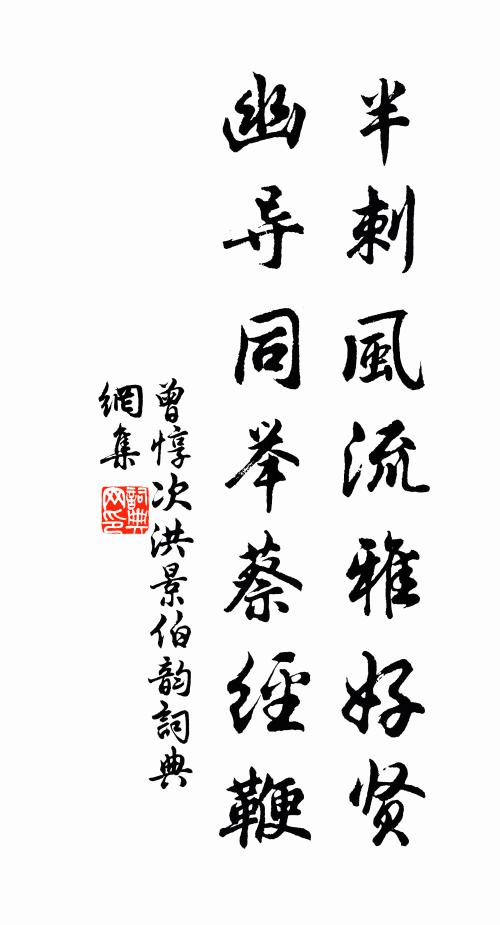 半刺風流雅好贤
幽寻同举蔡經鞭
曾惇次洪景伯韵詞典
網集
詞典
网印